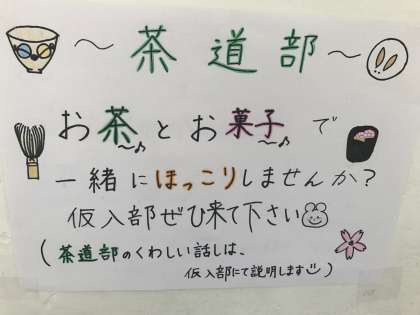 ～茶道部～
お茶とお菓子で
一緒にほっこりしませんか?
仮入部ぜひ来て下さい
(茶道部のくわしい話しは、
仮入部にて説明します)